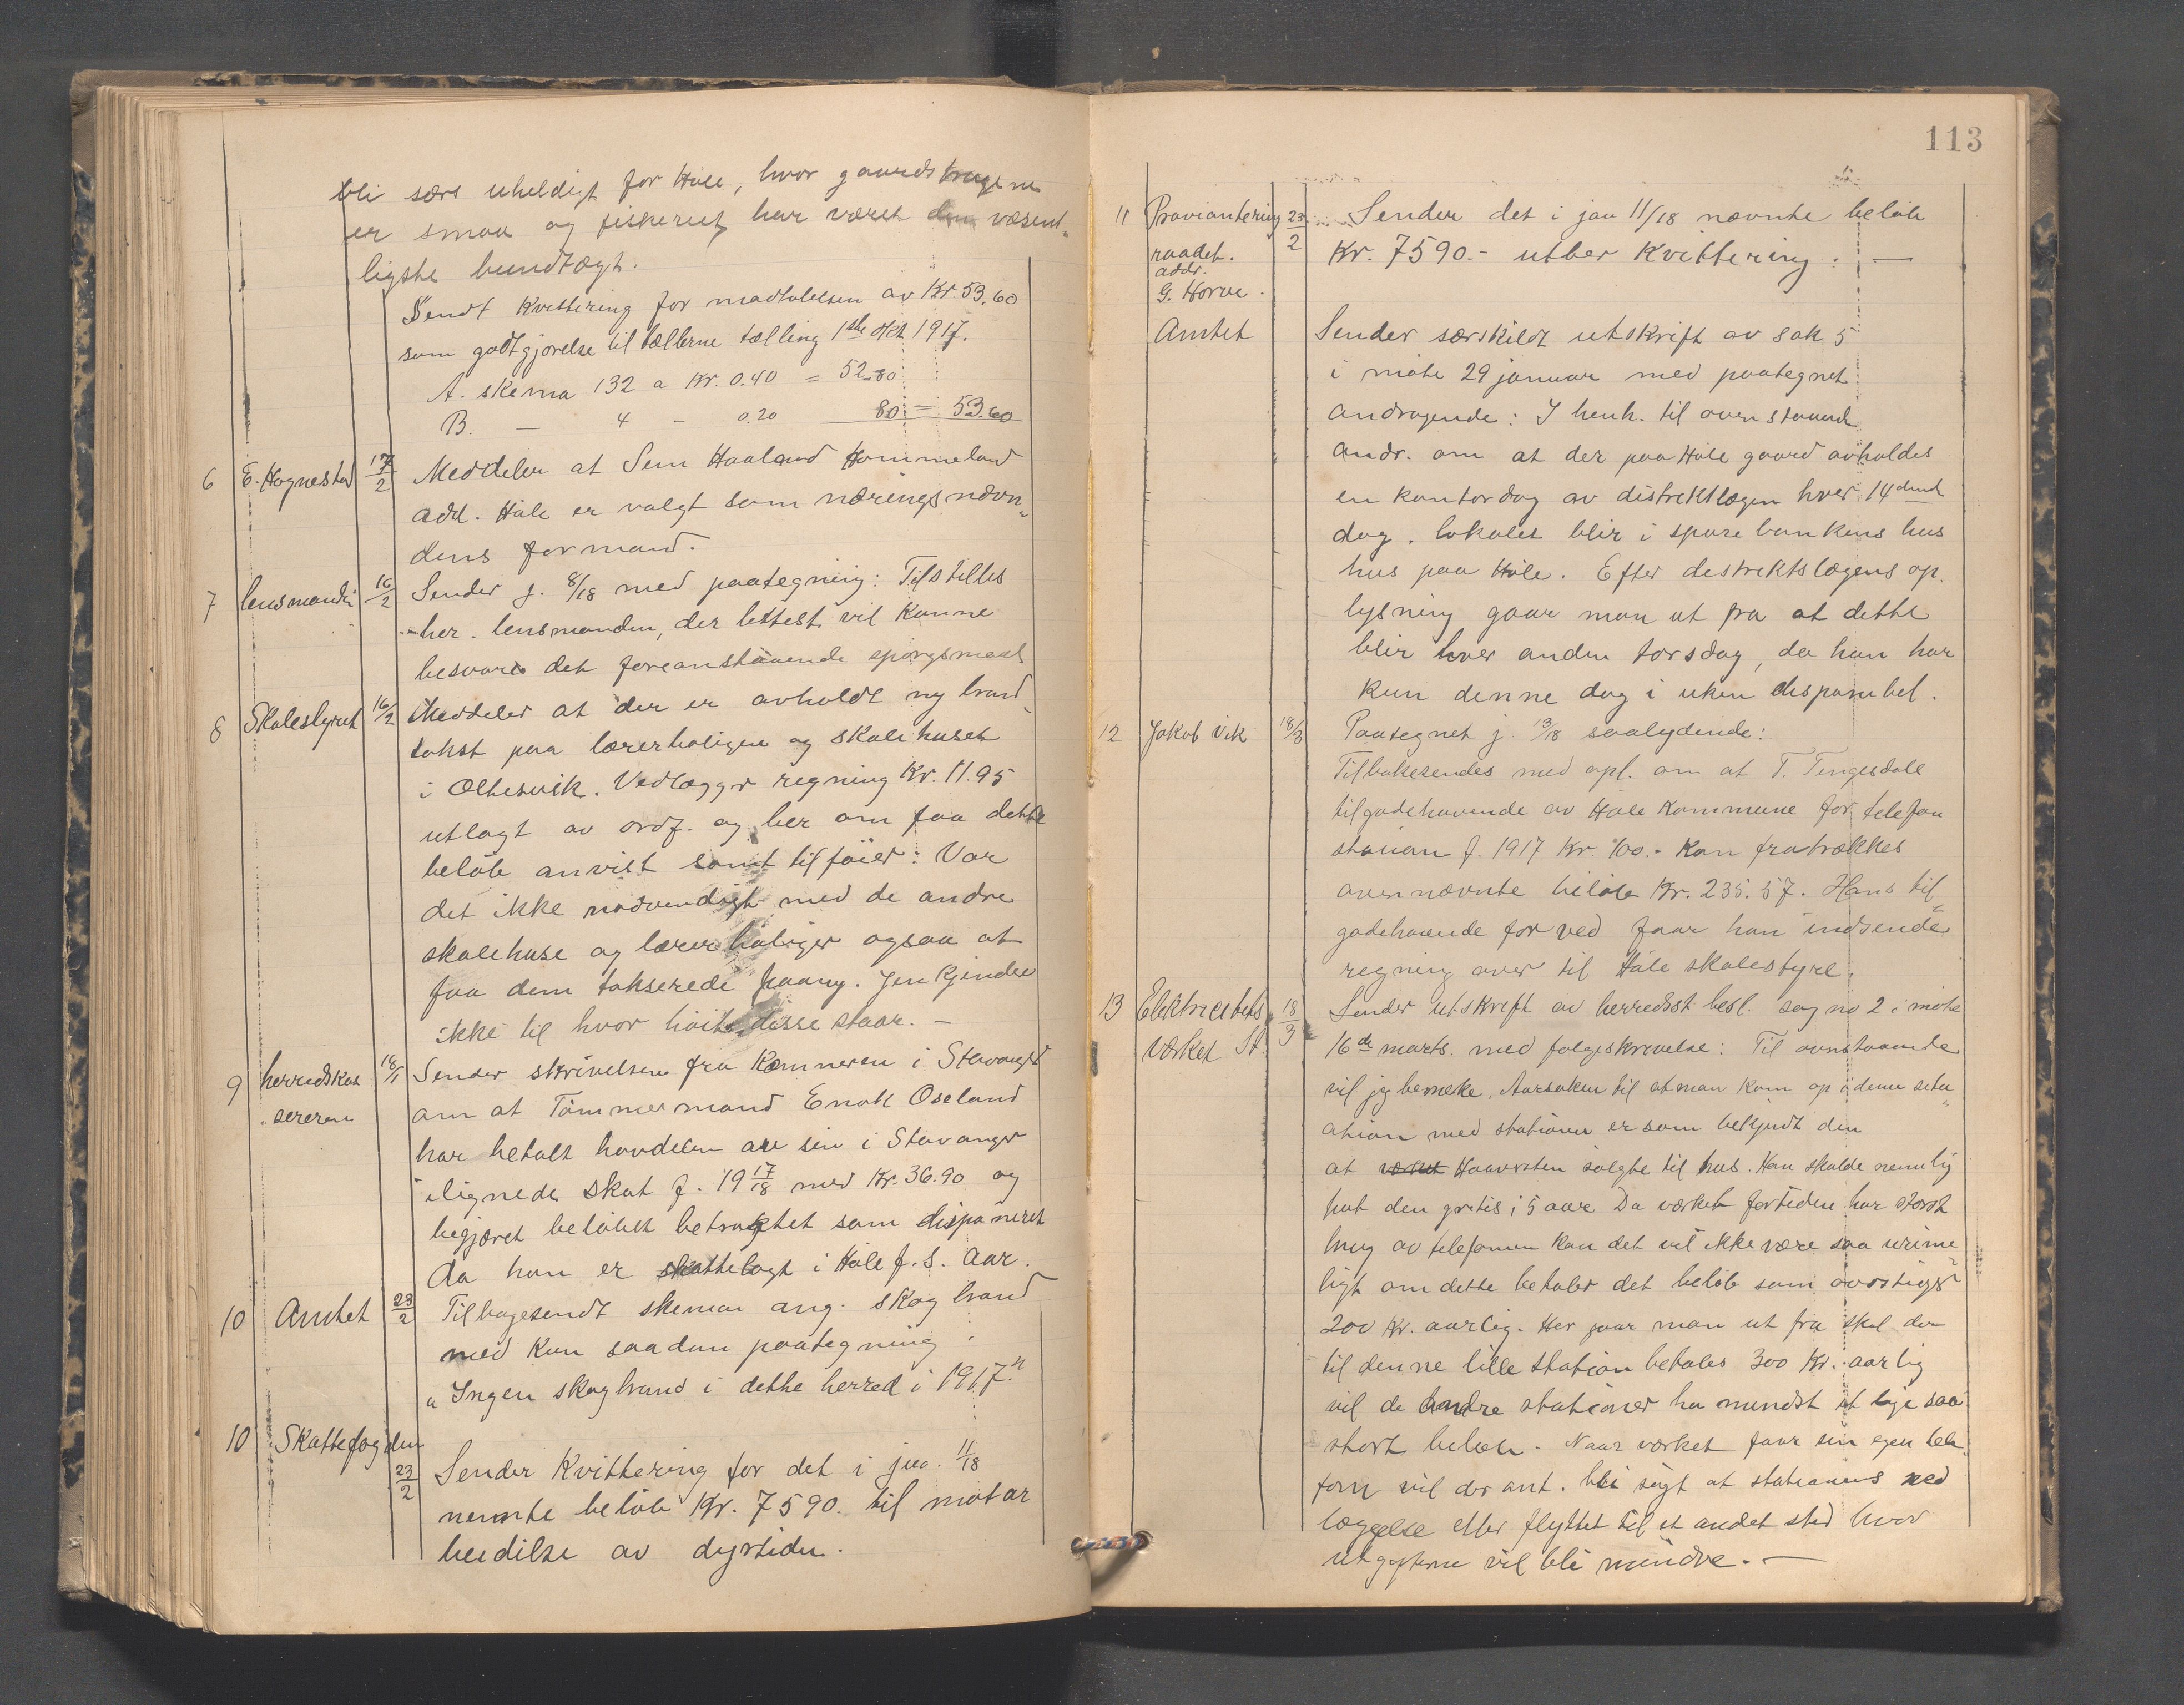 bli særs uheldigt for Hole, hvor gaardsbrugene
er smaa og fiskeriet har været den væsent-
ligste
Sendt kvittering for modtolelsen av Kr. 53.60
som godtgjørelse til tællerne tælling 1ste okt 1917.
A. skema 132 a Kr. 0.40 = 52.80
B. — 4 - 0.20 80 = 53.60
6 E. Hognestad 17/2 Meddeler at Sem Haaland Hommeland
add. Hole er valgt som næringsnævn-
dens formand.
7 lensmanden 16/2 Sender j. 8/18 med paategning: Tilstilles
her. lensmanden, der lettest vil kunne
besvare det foreanstaaende spørgsmaal
8 Skolestyret 16/2 Meddeler at der er avholdt ny brand-
takst paa lærerboligen og skolehuset
i Oltesvik. Vedlægger regning Kr. 11.95
utlagt av ordf. og ber om faa dette
beløb anvist samt tilføier: Var
det ikke nødvendigt med de andre
skolehuse og lærerboliger ogsaa at
faa dem takserede paany. Jen kjender
ikke til hvor høit disse staar. —
9 herredskas 18/1 Sender skrivelsen fra Kæmneren i Stavanger
sereren om at Tømmermand Enok Oseland
har betalt hovdelen av sin i Stavanger
ilignede skat f. 19 17/18 med Kr. 36.90 og
begjæret beløbet betragtet som disponeret
da han er skattelagt i Hole f. s. aar.
10 Amtet 23/2 Tilbagesendt skemaer ang. skogbrand
med kun saadan paategning
„Ingen skogbrand i dette herred i 1917."
10 Skattefogden
23/2 Sender Kvittering for det i jno. 11/18
nevnte beløb Kr. 7590. til motar
beidelse av dyrtiden.
113
11 Proviantering 23/2 Sender det i jno 11/18 nævnte beløb
raadet. Kr. 7590.- utber Kvittering. —
addr.
G. Horve.
Amtet Sender særskildt utskrift av sak 5
i møte 29 januar med paategnet
andragende: I henh. til ovenstaaende
andr. om at der paa Hole gaard avholdes
en kontordag av distriktlægen hver 14dende
dag. lokalet blir i sparebankens hus
hus paa Hole. Efter destriktslægens op.
lysning gaar man ut fra at dette
blir hver anden torsdag, da han har
kun denne dag i uken disponibel.
12 Jakob Vik 18/3 Paategnet j. 13/18 saalydende:
Tilbakesendes med opl. om at T. Tengesdall
tilgodehavende av Hole Kommune for telefon
stasion f. 1917 Kr. 100.- Kan fratrækkes
ovennævnte beløb Kr. 235.57. Hans til
godehavende for ved faar han indsende
regning over til Hole skolestyre.
13 Elektricitets 18/3 Sender utskrift av herredsst besl. sag no 2 i møte
værket St. 16de marts. med følgeskrivelse: Til ovenstaaende
vil jeg bemerke. Aarsaken til at man kom op i denne situ-
ation med stationen er som bekjendt den
at Haaversten solgte til hus. Han skulde nemlig
hat den gratis i 5 aar Da værket fortiden har størst
brug av telefonen kan det vel ikke være saa urime-
ligt om dette betaler det beløb som overstiger
200 kr. aarlig. Her gaar man ut fra skal der
til denne lille station betales 300 Kr. aarlig
vil de andre stationer ha mindst et lige saa
stort beløb. Naar værket faar sin egen tele
fon vil der ant. bli søgt at stationens ned
læggelse eller flyttet til et andet sted hvor
utgifterne vil bli mindre. —